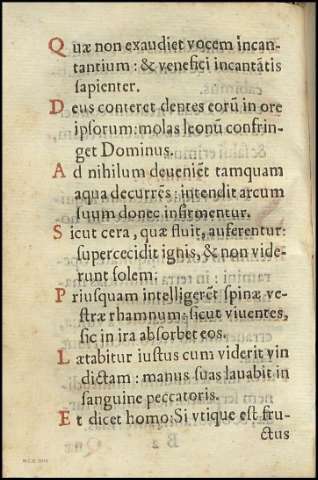 Quæ non exaudiet vocem incan-
tantium: & venefici incantãtis
sapienter.
Deus conteret dentes eorũ in ore
ipsorum: molas leonũ confrin-
get Dominus.
Ad nihilum deueniẽt tamquam
aqua decurrẽs: intendit arcum
suum donec infirmentur.
Sicut cera, quæ fluit, auferentur:
supercecidit ignis, & non vide-
runt solem.
Priusquam intelligerẽt spinæ ve-
stræ rhamnum: sicut viuentes,
sic in ira absorbet eos.
Lætabitur iustus cum viderit vin
dictam: manus suas lauabit in
sanguine peccatoris.
Et dicet homo: Si vtique est fru-
ctus